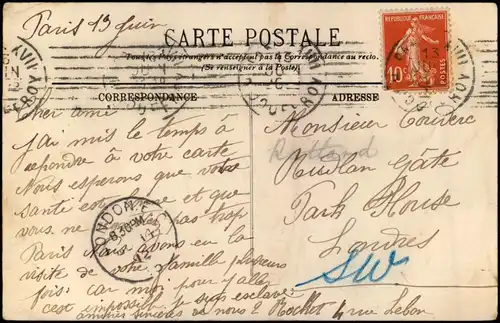 Paris 13 Juin
CARTE POSTALE
Tous les pays étrangers n'acceptent pas la correspondance au recto.
(Se renseigner à la Poste)
CORRESPONDANCE
ADRESSE
REPUBLIQUE FRANÇAISE
10c
POSTES
Cher ami
j'ai mis le temps à
répondre à votre carte
Nous esperons que votre
santé est bonne et que
vous ne pas trop
Paris Nous avons eu la
visite de votre famille plusieurs
fois: car moi pour y aller
c'est impossible je suis esclave.
amitiés sincères de nous 2 Rochet 4 rue Lebon
Monsieur
Rutland
Rutlan Gâte
Park House
Londres
SW
LONDON
6.30PM
12